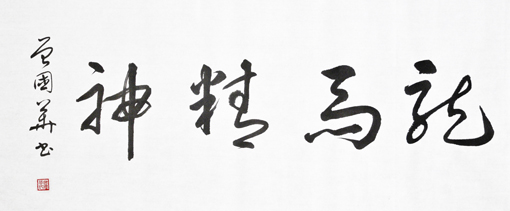 龍馬精神
曾國華書